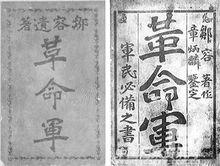 鄒容遺著
革命軍
鄒容 著作
章炳麟 鑒定
革命軍
軍民必備之書